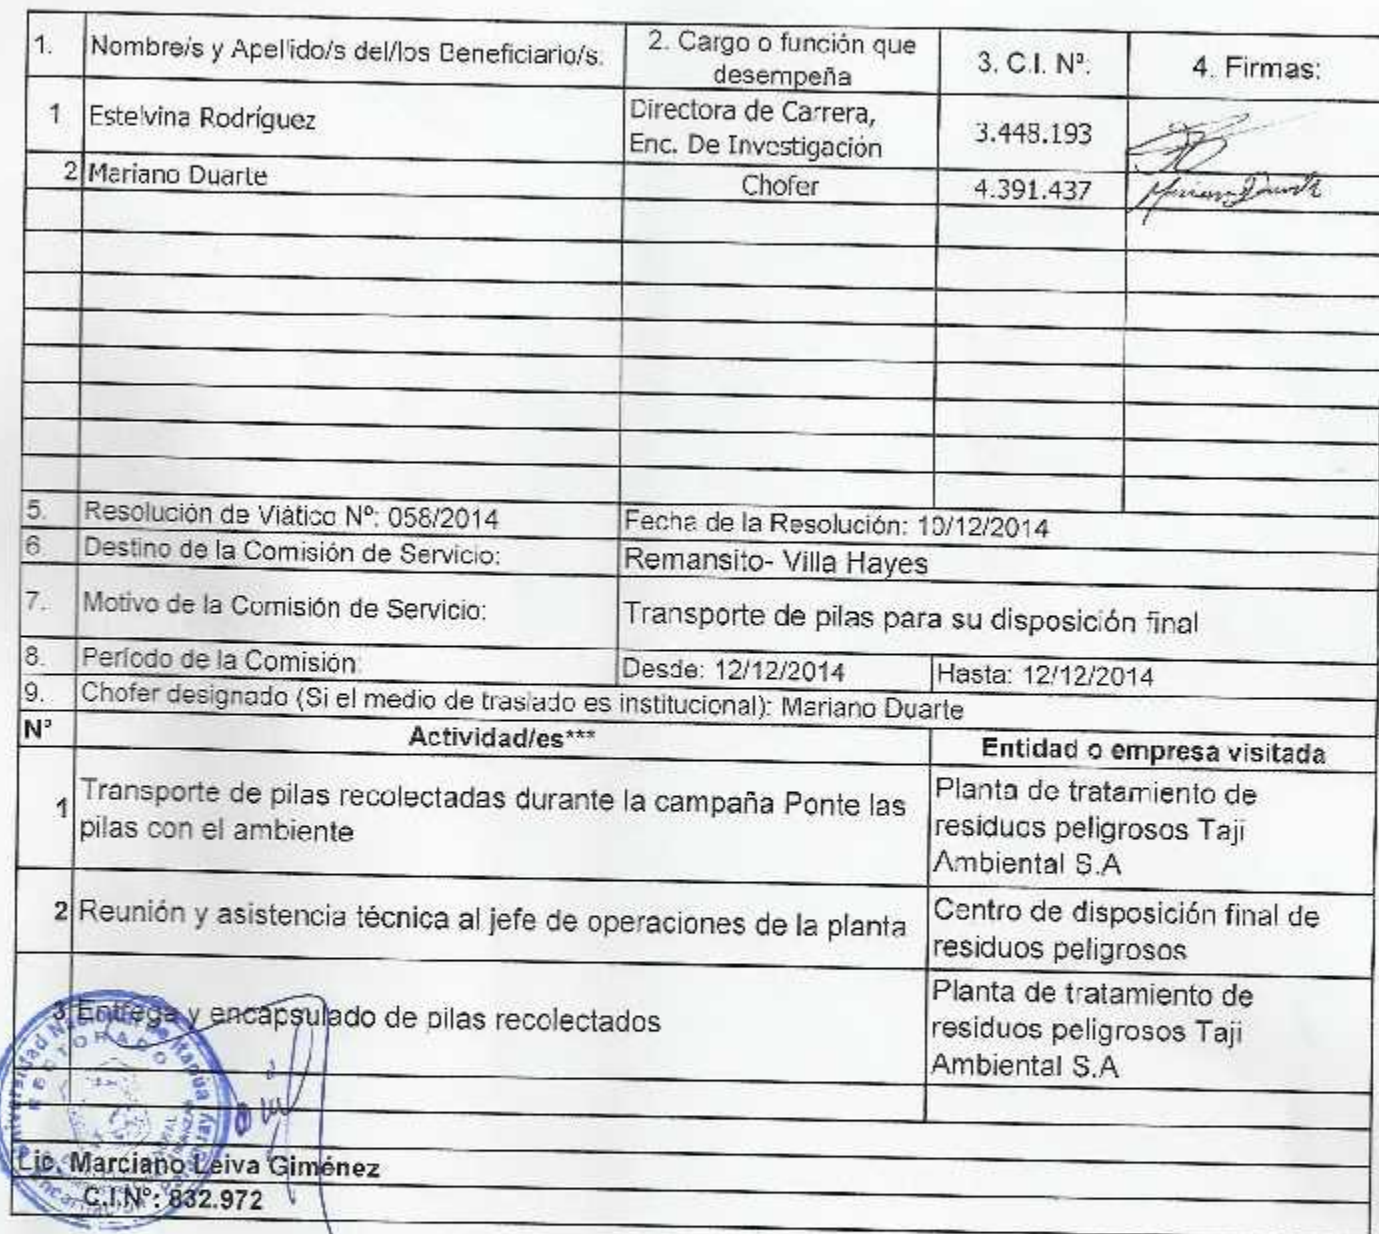 1. Nombre/s y Apellido/s del/los Beneficiario/s: 2. Cargo o función que desempeña 3. C.I. Nº: 4. Firmas:
1 Estelvina Rodríguez Directora de Carrera, Enc. De Investigación 3.448.193
2 Mariano Duarte Chofer 4.391.437 Mariano Duarte
5. Resolución de Viático Nº: 058/2014 Fecha de la Resolución: 10/12/2014
6. Destino de la Comisión de Servicio: Remansito- Villa Hayes
7. Motivo de la Comisión de Servicio: Transporte de pilas para su disposición final
8. Período de la Comisión: Desde: 12/12/2014 Hasta: 12/12/2014
9. Chofer designado (Si el medio de traslado es institucional): Mariano Duarte
Nº Actividad/es*** Entidad o empresa visitada
1 Transporte de pilas recolectadas durante la campaña Ponte las pilas con el ambiente Planta de tratamiento de residuos peligrosos Taji Ambiental S.A
2 Reunión y asistencia técnica al jefe de operaciones de la planta Centro de disposición final de residuos peligrosos
3 Entrega y encapsulado de pilas recolectados Planta de tratamiento de residuos peligrosos Taji Ambiental S.A
Universidad Nacional de Itapúa
RECTORADO
Lic. Marciano Leiva Giménez
C.I.Nº: 832.972